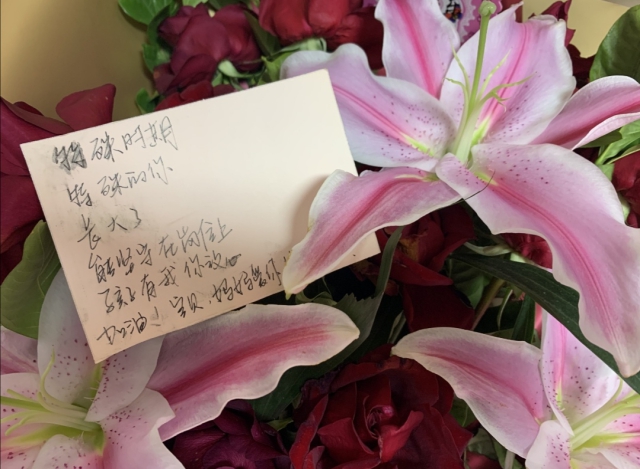 特殊时期
特殊的你
长大了
能坚守在岗位上
孩子有我你放心
加油，宝贝 妈妈